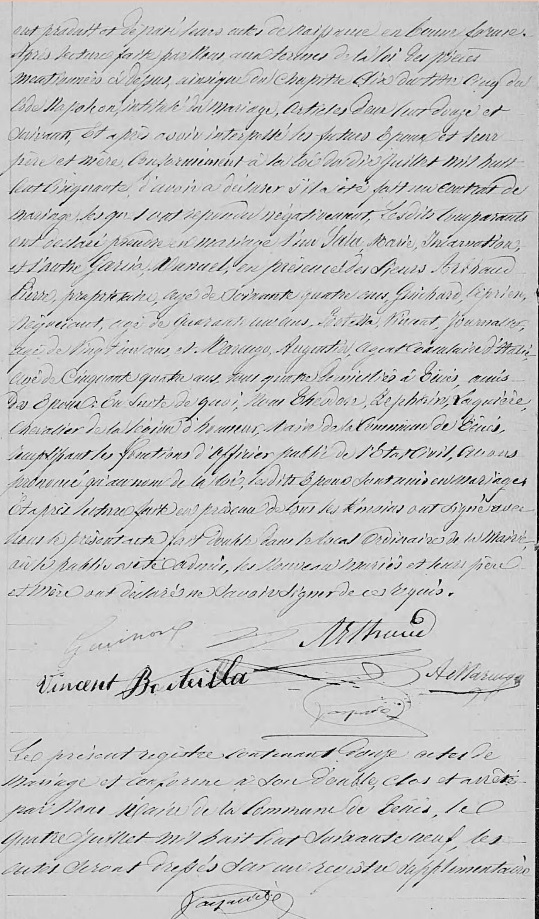 ont produit et déposé leurs actes de naissance en bonne forme.
Après lecture faite par Nous aux termes de la loi des pièces
mentionnées ci-dessus, ainsi que du Chapitre six du titre cinq du
Code Napoléon, intitulé du Mariage, Articles deux cent douze et
suivants, Et après avoir interpellé les futurs Epoux et leurs
père et mère, Conformément à la loi du dix Juillet mil huit
cent cinquante, d'avoir à déclarer s'il a été fait un contrat de
mariage, les quels ont répondu négativement, Lesdits Comparants
ont déclaré prendre en mariage l'un Marie, Incarnation,
et l'autre Garcia, Manuel, en présence des Sieurs Arthaud
Pierre, propriétaire, âgé de soixante quatre ans, Guichard, Cyprien,
Négociant, agé de Quarante un ans, Vincent, Journalier,
agé de Vingt un ans et Marengo, Augustin, agent Consulaire d'Italie
agé de Cinquante quatre ans, tous quatre domiciliés à Ténès, amis
des Epoux. En suite de quoi, Nous
Chevalier de la Légion d'honneur, Maire de la Commune de Ténès,
remplissant les fonctions d'officier public de l'Etat Civil, avons
prononcé qu'au nom de la loi, lesdits Epoux sont unis en mariage
Et après lecture faite en présence de tous les témoins ont signé avec
nous le présent acte fait double dans le local Ordinaire de la Mairie
où le public a été admis, les Nouveaux Mariés et leurs père
et Mère ont déclaré ne savoir signer de ces requis.
Arthaud
Vincent
A. Marengo
Le présent registre contenant douze actes de
Mariage est conforme à son double, clos et arrêté
par Nous Maire de la Commune de Ténès, le
quatre Juillet mil huit cent soixante neuf, les
actes seront dressés sur un registre supplémentaire